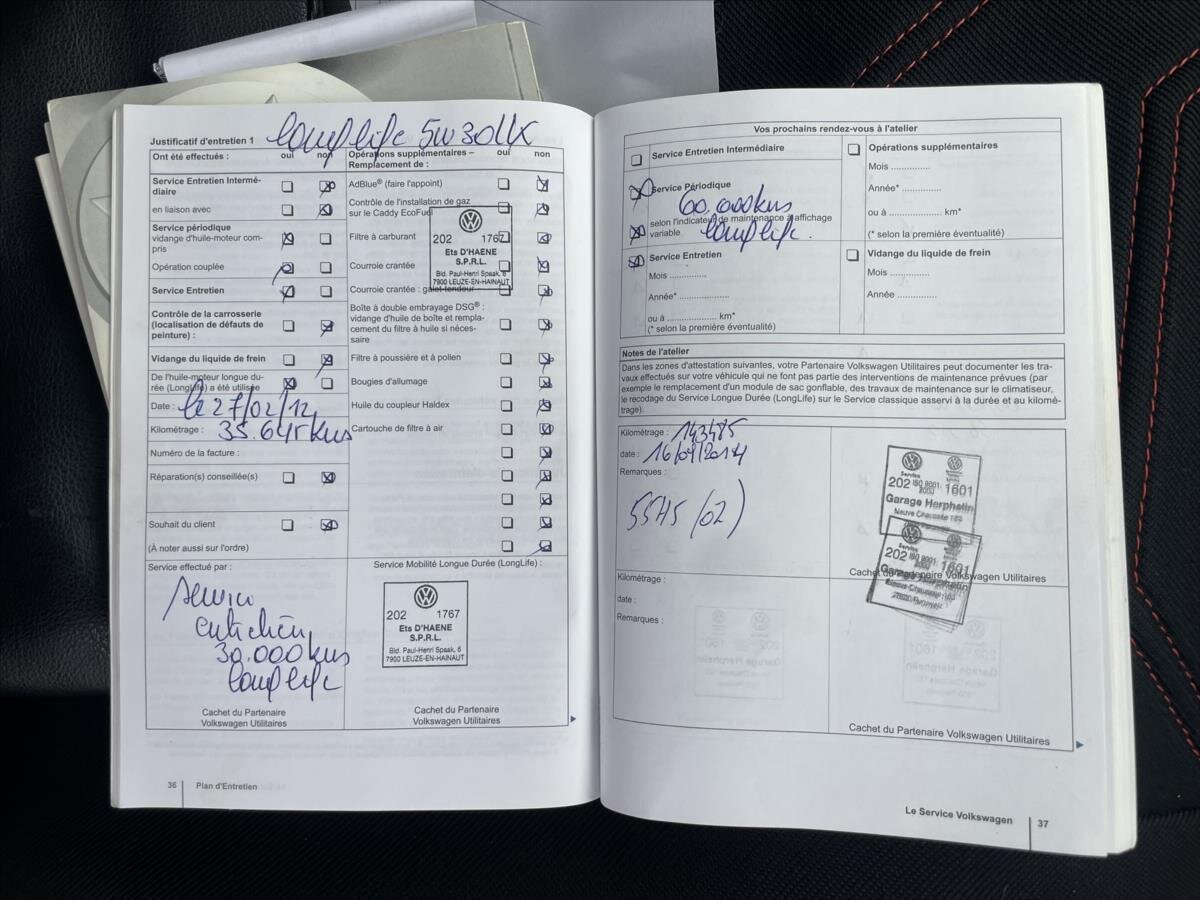 Justificatif d'entretien 1
longlife 5W30LL
Ont été effectués : oui non
Service Entretien Intermé-
diaire
en liaison avec
Service périodique
vidange d'huile-moteur com-
pris
Opération couplée
Service Entretien
Contrôle de la carrosserie
(localisation de défauts de
peinture) :
Vidange du liquide de frein
De l'huile-moteur longue du-
rée (LongLife) a été utilisée
Date : le 27/02/12
Kilométrage : 35.645 kms
Numéro de la facture :
Réparation(s) conseillée(s)
Souhait du client
(À noter aussi sur l'ordre)
Service effectué par :
Service
entretien
30.000 kms
longlife
Cachet du Partenaire
Volkswagen Utilitaires
Opérations supplémentaires –
Remplacement de : oui non
AdBlue® (faire l'appoint)
Contrôle de l'installation de gaz
sur le Caddy EcoFuel
Filtre à carburant
Courroie crantée
Courroie crantée : galet tendeur
Boîte à double embrayage DSG® :
vidange d'huile de boîte et rempla-
cement du filtre à huile si néces-
saire
Filtre à poussière et à pollen
Bougies d'allumage
Huile du coupleur Haldex
Cartouche de filtre à air
202 1767
Ets D'HAENE
S.P.R.L.
Bld. Paul-Henri Spaak, 6
7900 LEUZE-EN-HAINAUT
Service Mobilité Longue Durée (LongLife) :
202 1767
Ets D'HAENE
S.P.R.L.
Bld. Paul-Henri Spaak, 6
7900 LEUZE-EN-HAINAUT
Cachet du Partenaire
Volkswagen Utilitaires
36 Plan d'Entretien
Vos prochains rendez-vous à l'atelier
Service Entretien Intermédiaire
Service Périodique
60.000 kms
selon l'indicateur de maintenance à affichage
variable.
longlife.
Service Entretien
Mois ............
Année* ................
ou à ................ km*
(* selon la première éventualité)
Opérations supplémentaires
Mois ............
Année* .............
ou à ..................... km*
(* selon la première éventualité)
Vidange du liquide de frein
Mois .............
Année ................
Notes de l'atelier
Dans les zones d'attestation suivantes, votre Partenaire Volkswagen Utilitaires peut documenter les tra-
vaux effectués sur votre véhicule qui ne font pas partie des interventions de maintenance prévues (par
exemple le remplacement d'un module de sac gonflable, des travaux de maintenance sur le climatiseur,
le recodage du Service Longue Durée (LongLife) sur le Service classique asservi à la durée et au kilomé-
trage).
Kilométrage : 143485
date : 16/09/2014
Remarques :
55H5 (02)
Service
202 ISO 9001: 2000 1601
Garage Herphelin
Neuve Chaussée 189
Service
202 ISO 9001: 1601
Garage Herphelin
Cachet du Partenaire Volkswagen Utilitaires
Kilométrage :
date :
Remarques :
Cachet du Partenaire Volkswagen Utilitaires
Le Service Volkswagen 37